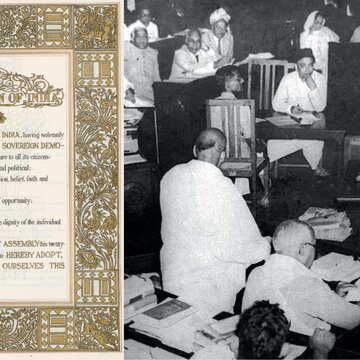 N OF INDIA
INDIA, having solemnly
SOVEREIGN DEMO-
ure to all its citizens:
nd political;
sion, belief, faith and
opportunity;
e dignity of the individual
ASSEMBLY this twenty-
HEREBY ADOPT,
OURSELVES THIS